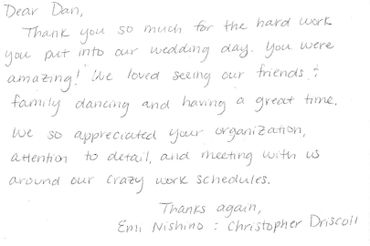 Dear Dan,
Thank you so much for the hard work
you put into our wedding day. You were
amazing! We loved seeing our friends &
family dancing and having a great time.
We so appreciated your organization,
attention to detail, and meeting with us
around our crazy work schedules.
Thanks again,
Emi Nishino & Christopher Driscoll